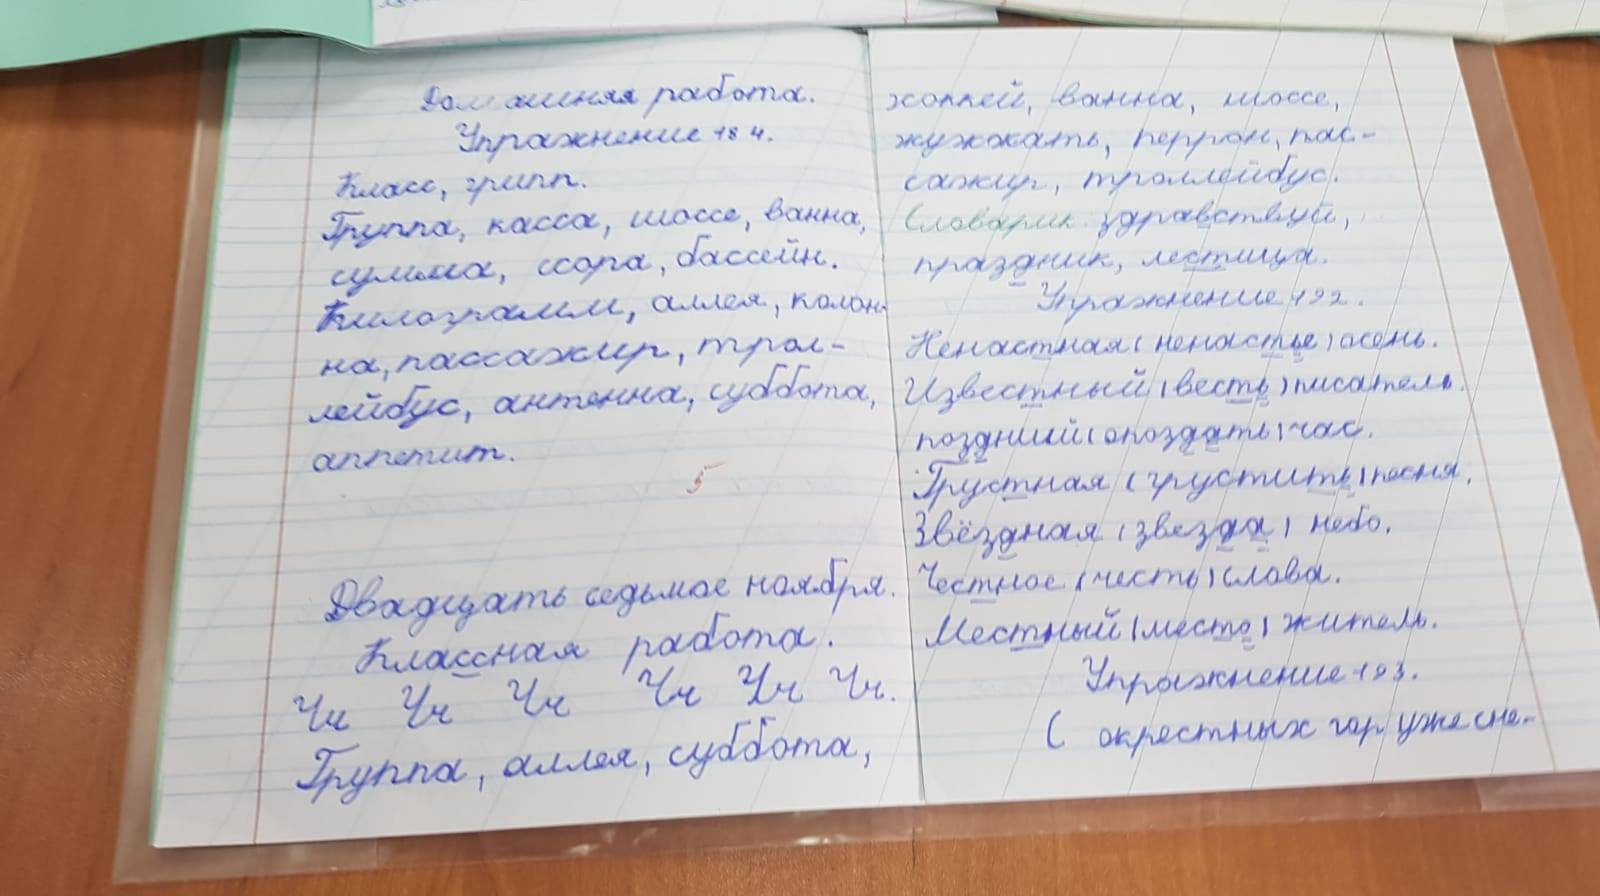 Домашняя работа.
Упражнение 184.
Класс, грипп.
Группа, касса, шоссе, ванна,
сумма, ссора, бассейн.
Килограмм, аллея, колон-
на, пассажир, трол-
лейбус, антенна, суббота,
аппетит.
5
Двадцать седьмое ноября.
Классная работа.
Чч Чч Чч Чч Чч Чч.
Группа, аллея, суббота,
хоккей, ванна, шоссе,
жужжать, перрон, пас-
сажир, троллейбус.
Словарик здравствуй,
праздник, лестица.
Упражнение 192.
Ненастная (ненастье) осень.
Известный (весть) писатель.
поздний (опоздать) час.
Грустная (грустить) песня.
Звёздная (звезда) небо.
Честное (честь) слова.
Местный (место) житель.
Упражнение 193.
С окрестных гор уже сне-